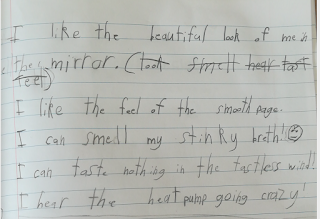 I like the beautiful look of me in
the mirror. (look smell hear tast
feel)
I like the feel of the smooth page.
I can smell my stinky breth!
I can taste nothing in the tastless wind!
I hear the heat pump going crazy!